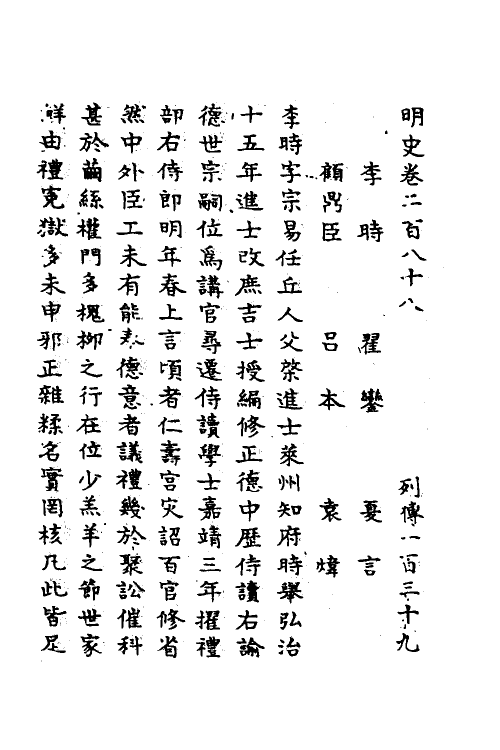 明史卷二百八十八　列傳一百三十九
李時　翟鑾　夏言
顧鼎臣　呂本　袁煒
李時字宗易任丘人父棨進士萊州知府時舉弘治
十五年進士改庶吉士授編修正德中歷侍讀右諭
德世宗嗣位爲講官尋遷侍讀學士嘉靖三年擢禮
部右侍郎明年春上言頃者仁壽宮灾詔百官修省
然中外臣工未有能奉德意者議禮幾於聚訟催科
甚於繭絲權門多槐柳之行在位少羔羊之節世家
鮮由禮冤獄多未申邪正雜糅名實罔核凡此皆足